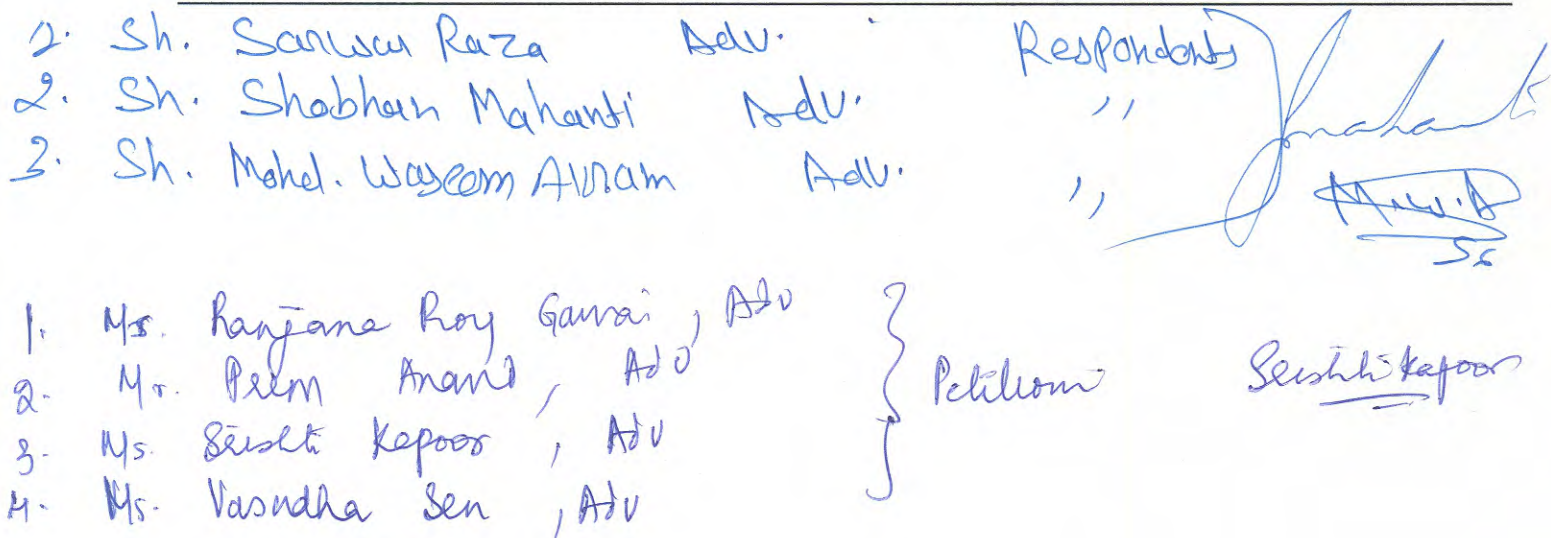 1. Sh. Sarwar Raza Adv. Respondents
2. Sh. Shobhan Mahanti Adv. ,,
3. Sh. Mohd. Waseem Akram Adv. ,,
1. Ms. Ranjana Roy Gawai, Adv
2. Mr. Prem Anand, Adv
3. Ms. Srishti Kapoor, Adv
4. Ms. Vasudha Sen, Adv
Petitioner Srishti Kapoor